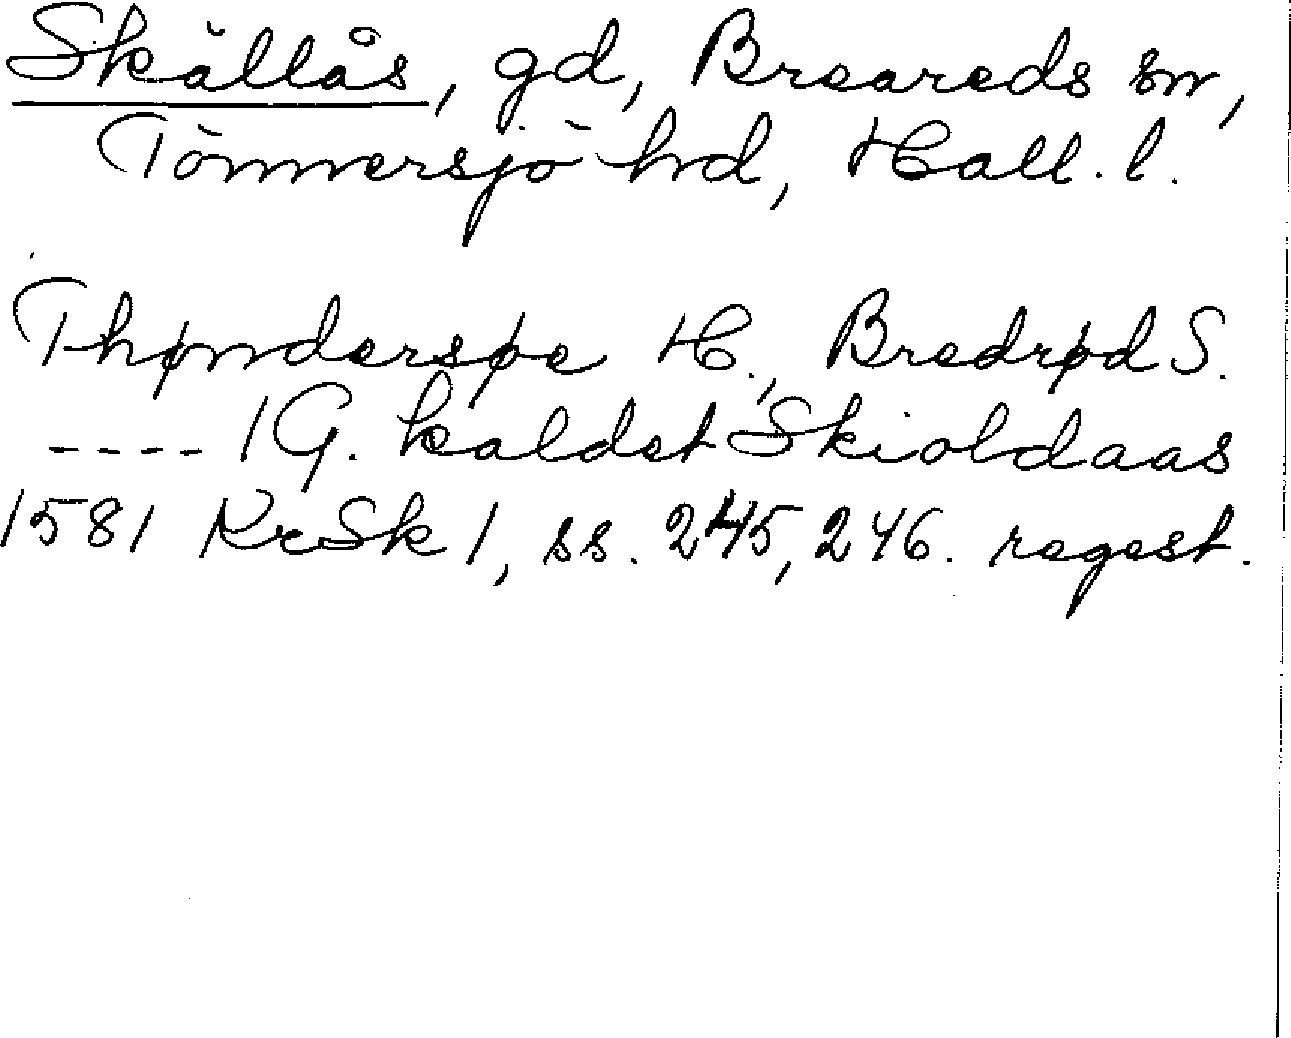 Skällås, gd, Breareds sn,
Tönnersjö hd, Hall. l.
Thøndersøe H., Bredrød S.
---- 1 G. kaldet Skioldaas
1581 KrSk 1, ss. 245, 246. regest.